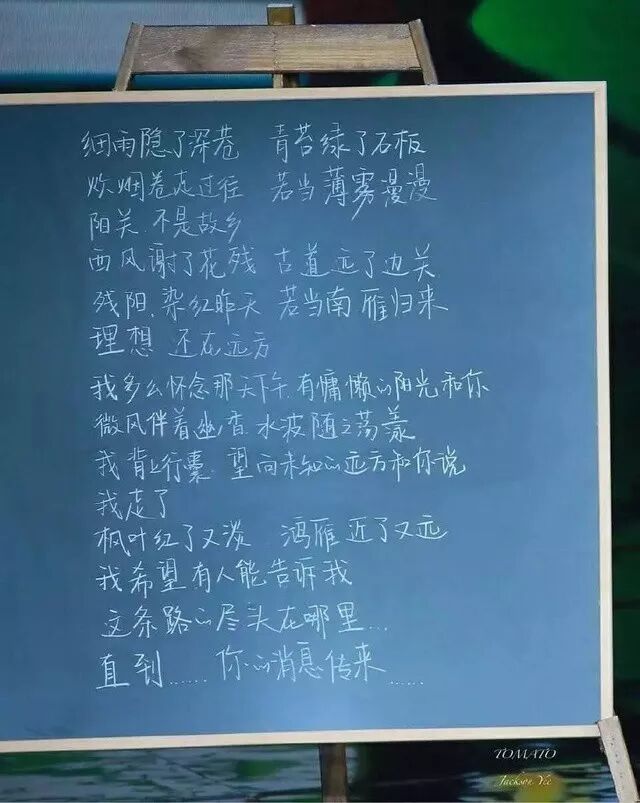 细雨隐了深巷 青苔绿了石板
炊烟卷走过往 若当薄雾漫漫
阳关.不是故乡
西风谢了花残 古道远了边关
残阳.染红昨天 若当南雁归来
理想 还在远方
我多么怀念那天下午.有慵懒的阳光和你
微风伴着幽香 水波随之荡漾
我背上行囊.望向未知的远方和你说
我走了
枫叶红了又淡 鸿雁近了又远
我希望有人能告诉我
这条路的尽头在哪里...
直到...... 你的消息传来......
TOMATO
Jackson Yee